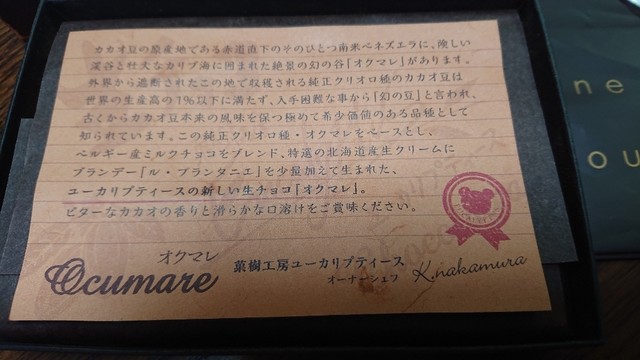 カカオ豆の原産地である赤道直下のそのひとつ南米ベネズエラに、険しい
渓谷と壮大なカリブ海に囲まれた絶景の幻の谷「オクマレ」があります。
外界から遮断されたこの地で収穫される純正クリオロ種のカカオ豆は
世界の生産高の1%以下に満たず、入手困難な事から「幻の豆」と言われ、
古くからカカオ豆本来の風味を保つ極めて希少価値のある品種として
知られています。この純正クリオロ種・オクマレをベースとし、
ベルギー産ミルクチョコをブレンド、特選の北海道産生クリームに
ブランデー「ル・ブランタニエ」を少量加えて生まれた、
ユーカリプティースの新しい生チョコ「オクマレ」。
ビターなカカオの香りと滑らかな口溶けをご賞味ください。
オクマレ
Ocumare
菓樹工房ユーカリプティース
オーナーシェフ K.nakamura
ne
ou